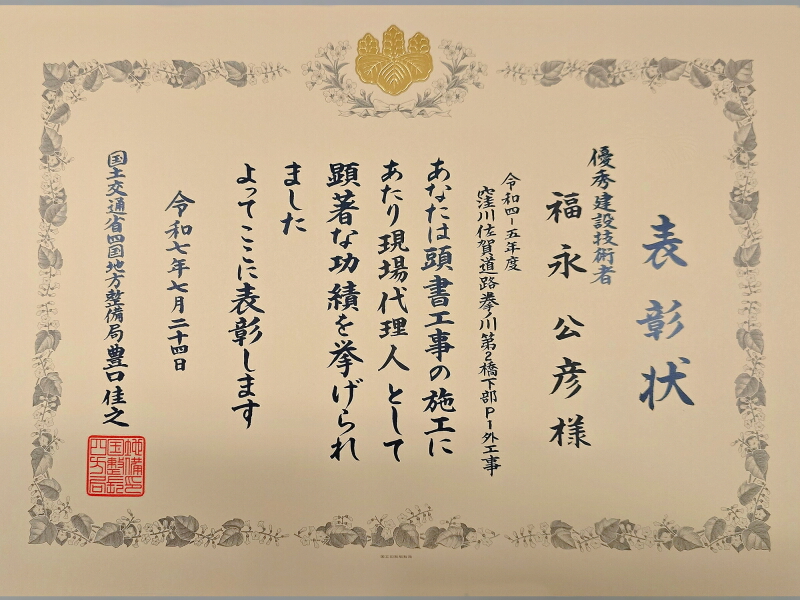 表彰状
優秀建設技術者
福永公彦様
令和四-五年度
窪川佐賀道路拳ノ川第2橋下部P1外工事
あなたは頭書工事の施工に
あたり現場代理人として
顕著な功績を挙げられ
ました
よってここに表彰します
令和七年七月二十四日
国土交通省四国地方整備局豊口佳之